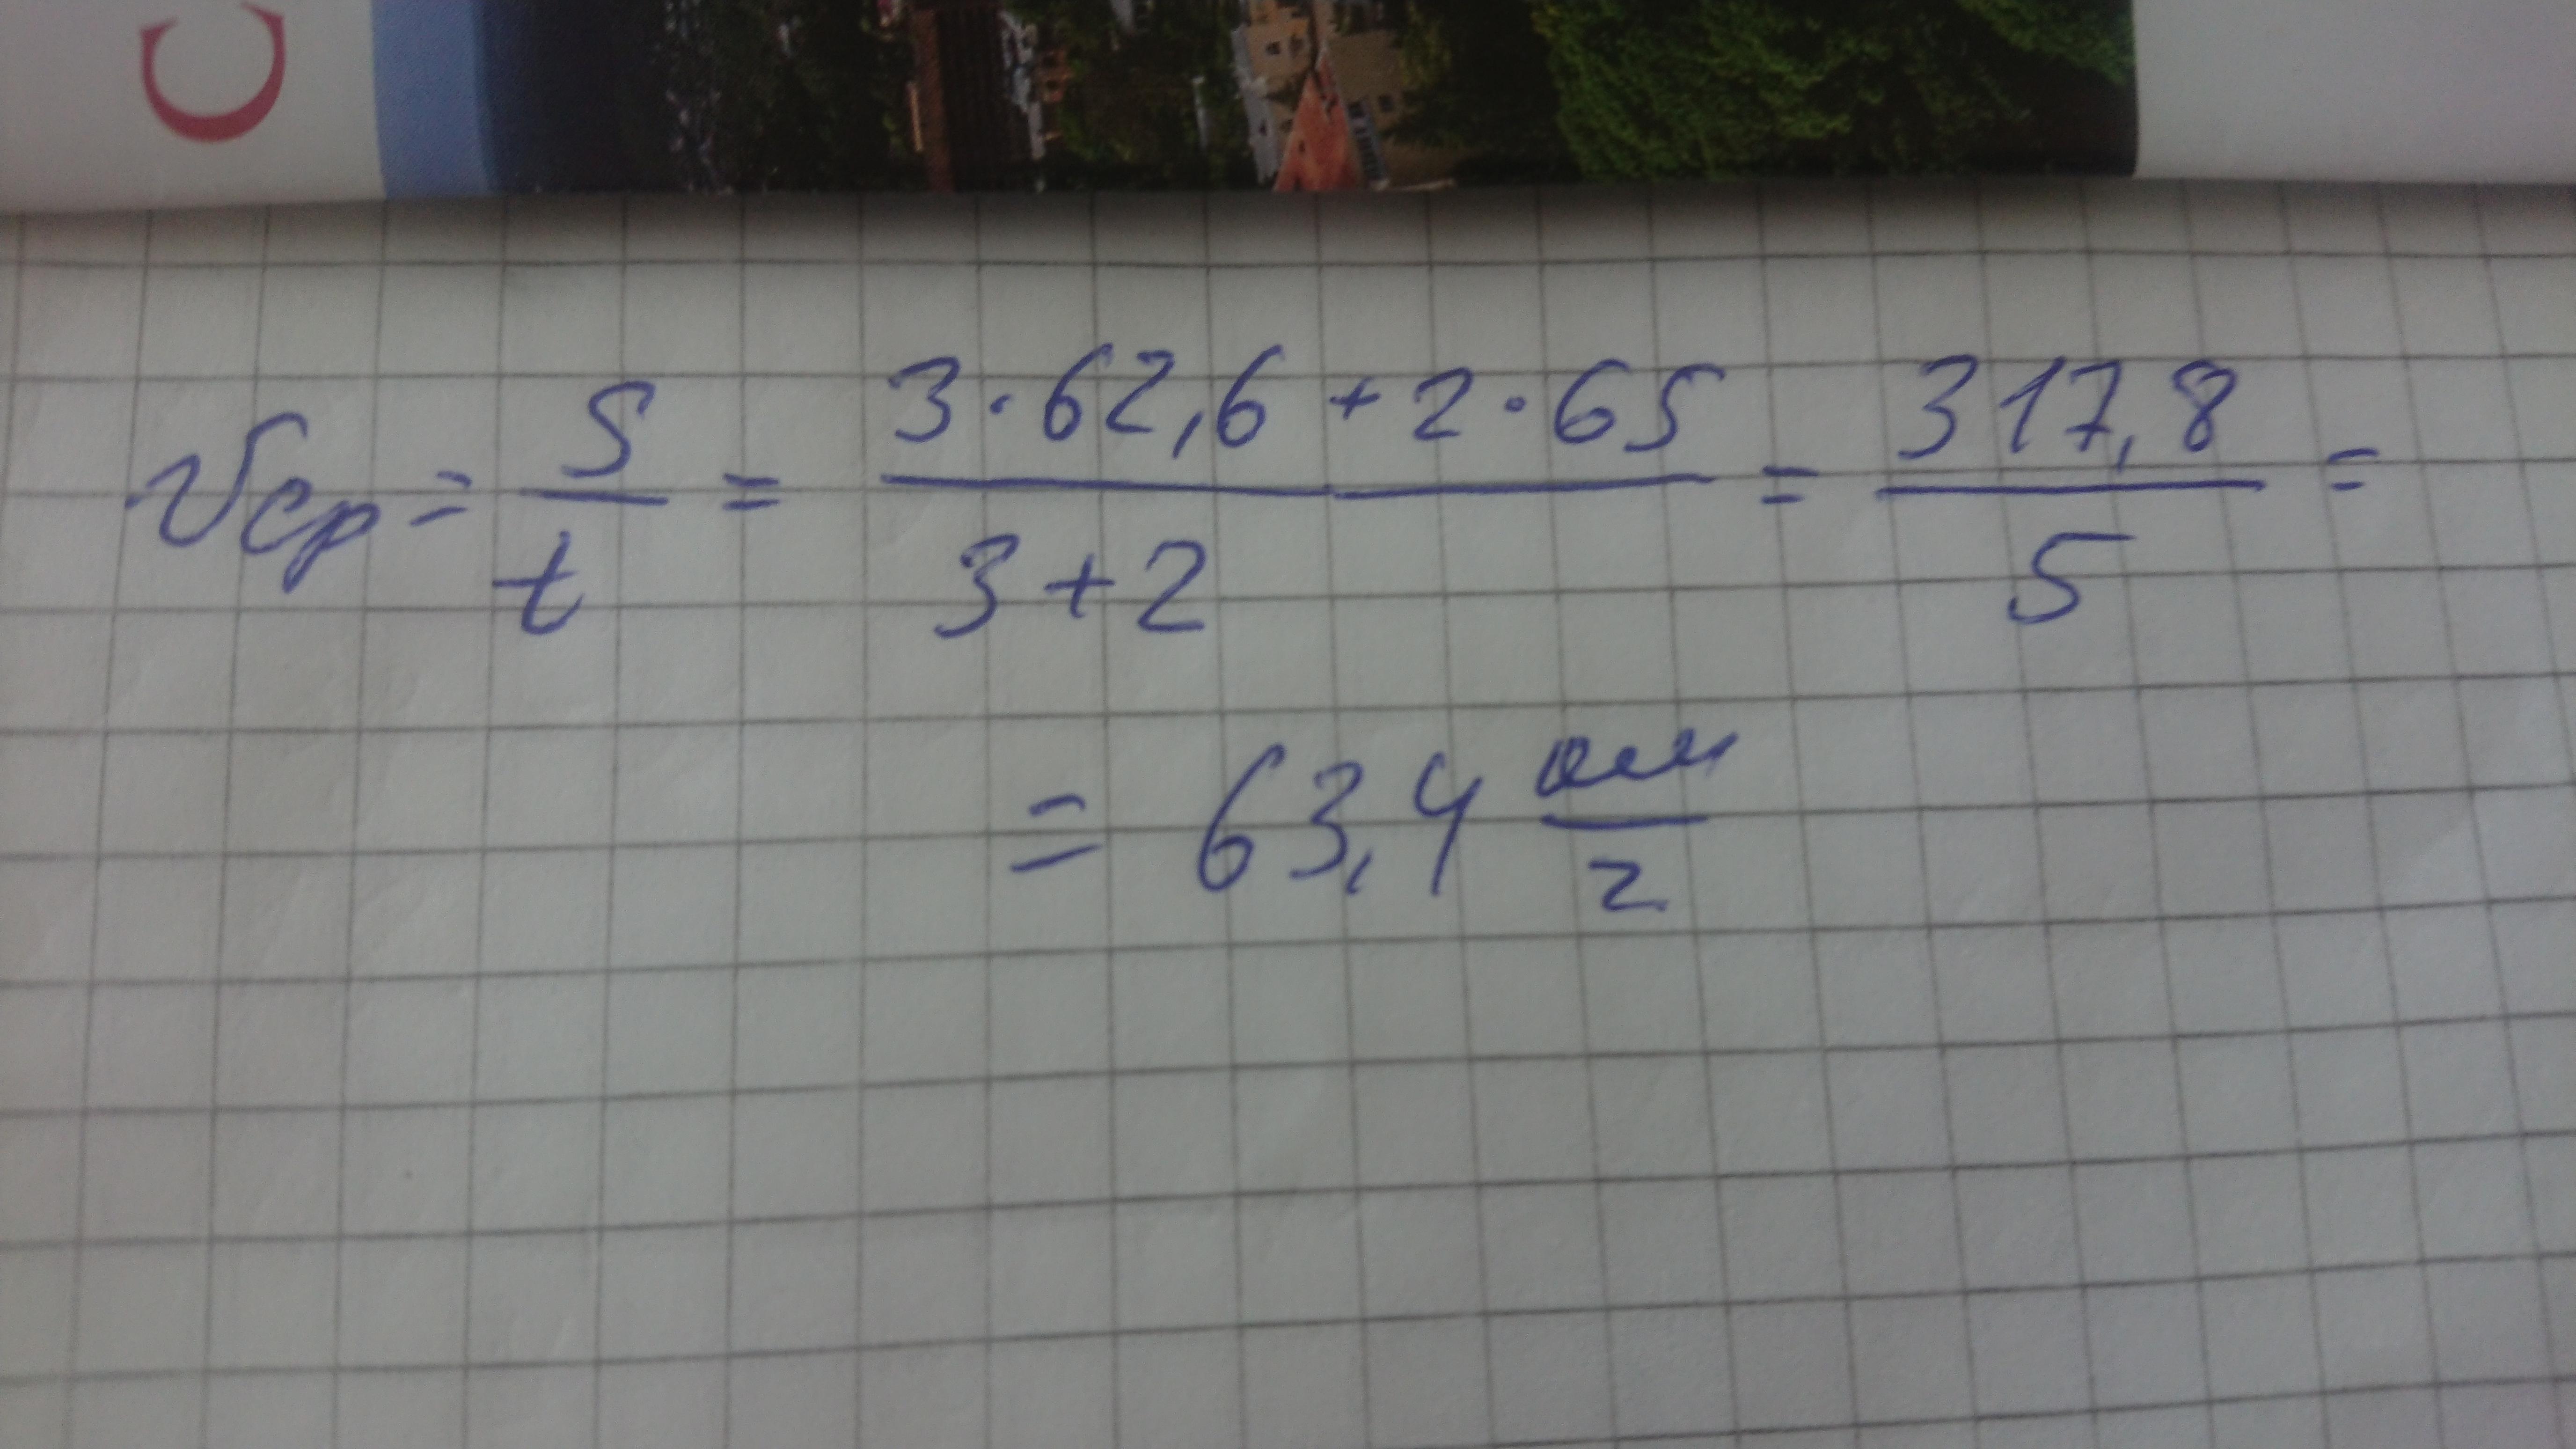 C
Vср = S/t = (3·62,6 + 2·65)/(3+2) = 317,8/5 =
= 63,4